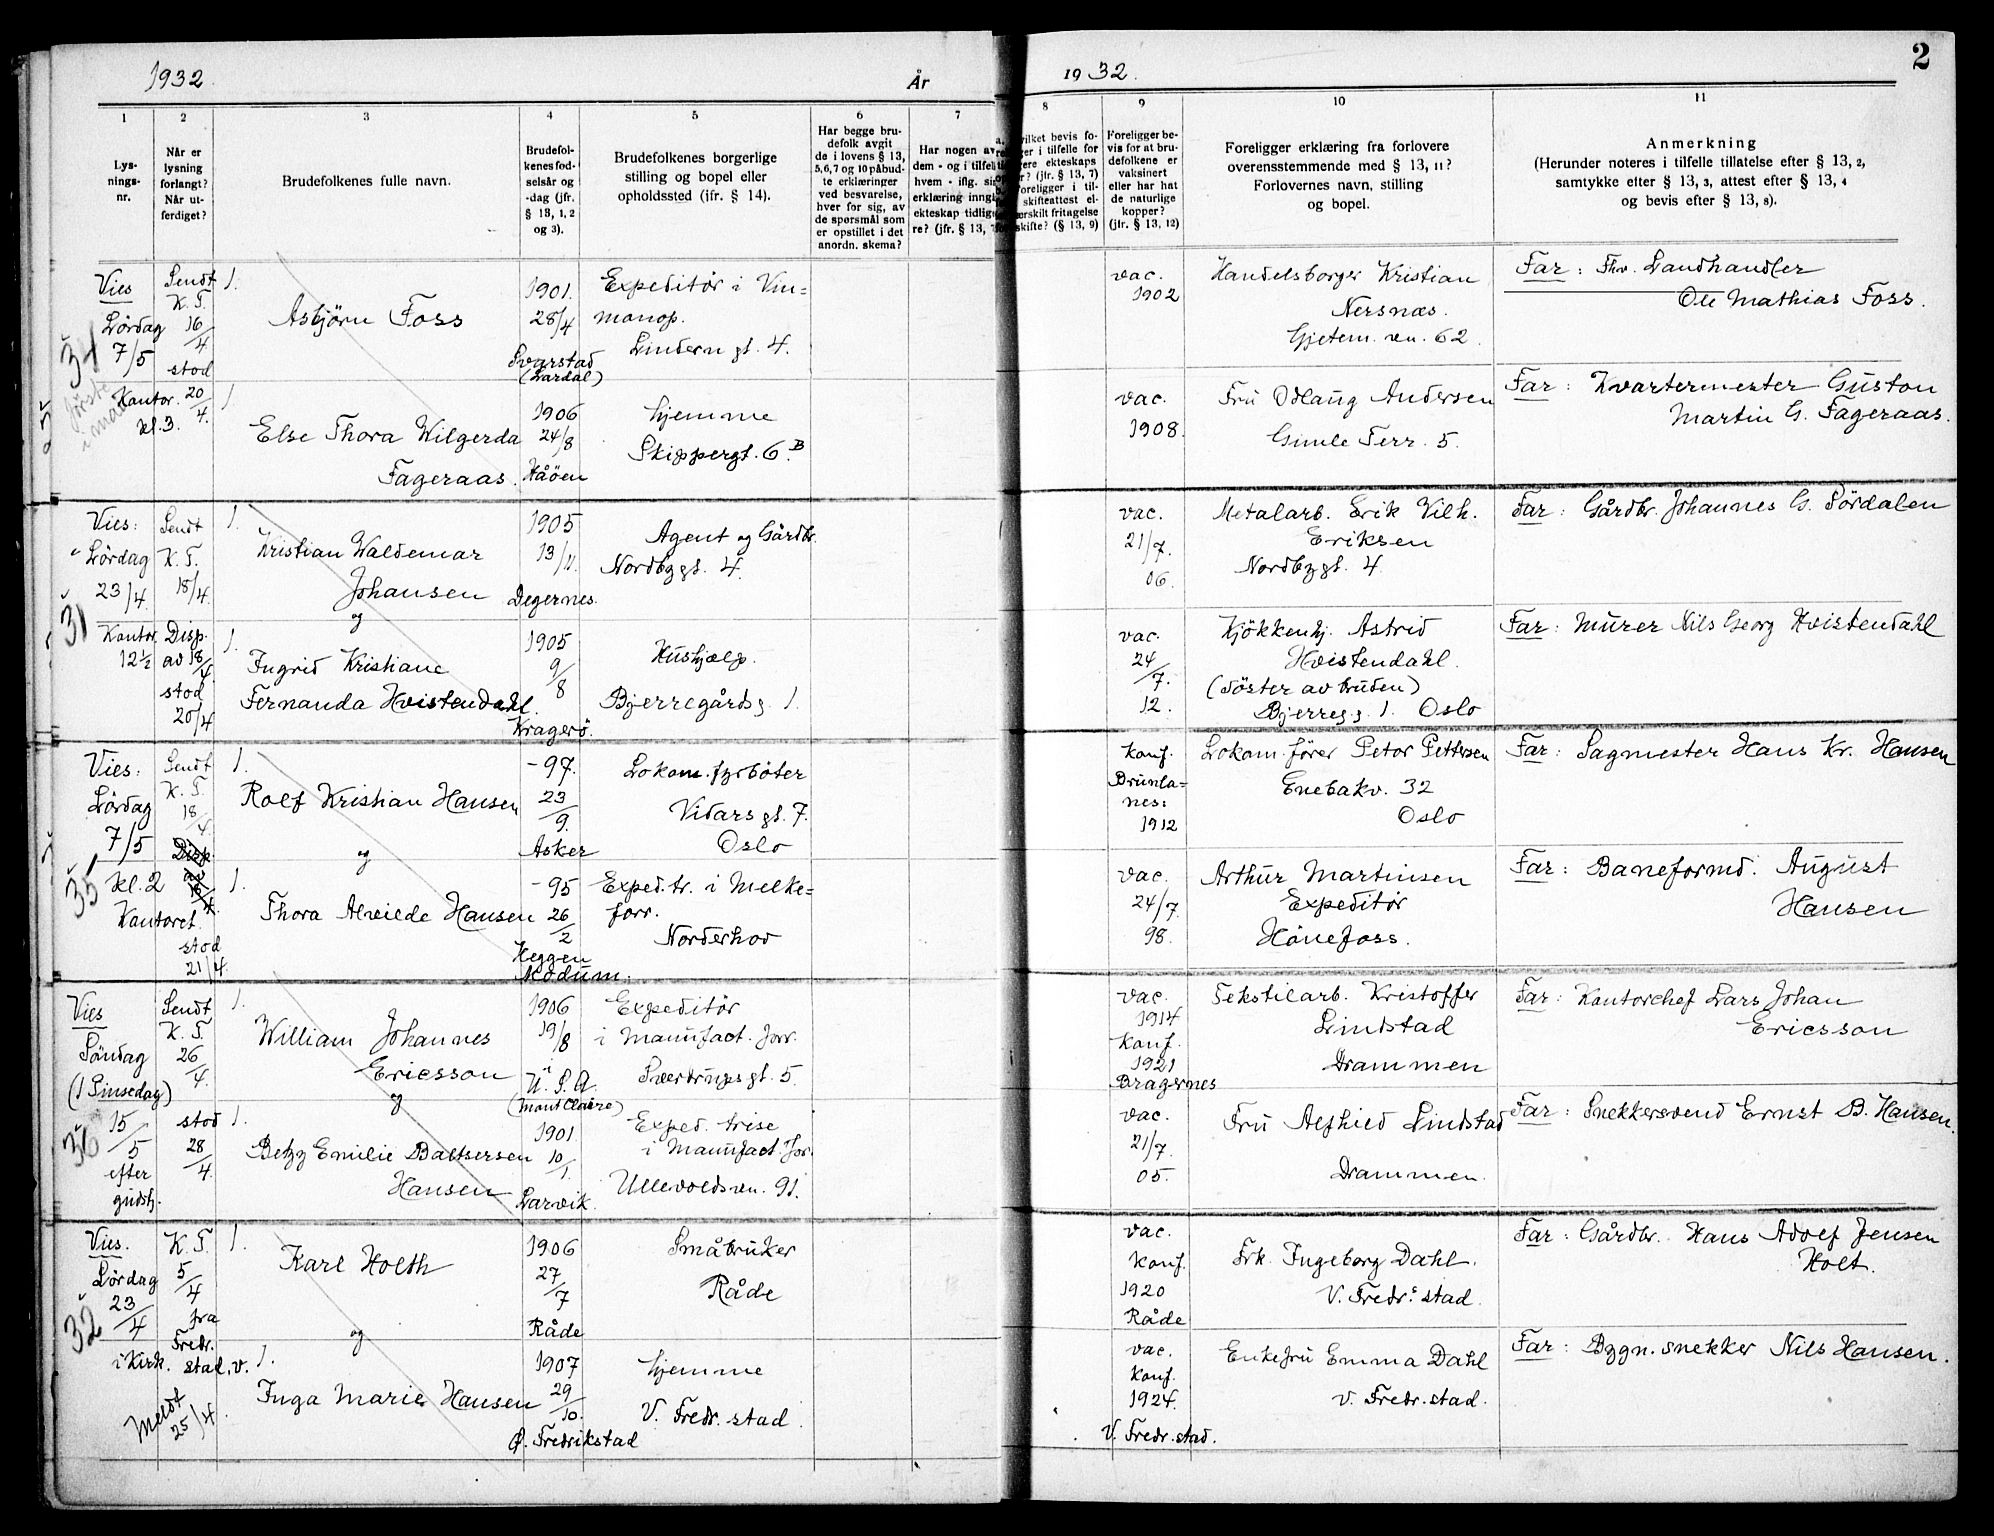 1932.
År
1932.
2
1
2
3
4
5
6
7
8
9
10
11
Lys-
nings-
nr.
Når er
lysning
forlangt?
Når ut-
ferdiget?
Brudefolkenes fulle navn.
Brudefol-
kenes fød-
selsår og
-dag (jfr.
§ 13, 1, 2
og 3).
Brudefolkenes borgerlige
stilling og bopel eller
opholdssted (jfr. § 14).
Har begge bru-
defolk avgit
de i lovens § 13,
5, 6, 7 og 10 påbud-
te erklæringer
ved besvarelse,
hver for sig, av
de spørsmål som
er opstillet i det
anordn. skema?
Har nogen av
dem - og i tilfelle
hvem - iflg. sig
erklæring inngå
ekteskap tidlige
re? (jfr. § 13, 7
vilket bevis fo-
ger i tilfelle for
ere ekteskaps
r? (jfr. § 13, 7)
Foreligger i til-
skifteattest el-
ærskilt fritagelse
skifte? (§ 13, 9)
Foreligger be-
vis for at bru-
defolkene er
vaksinert
eller har hat
de naturlige
kopper?
(jfr. § 13, 12)
Foreligger erklæring fra forlovere
overensstemmende med § 13, 11?
Forlovernes navn, stilling
og bopel.
Anmerkning
(Herunder noteres i tilfelle tillatelse efter § 13, 2,
samtykke efter § 13, 3, attest efter § 13, 4
og bevis efter § 13, 8).
34
Vies
Lördag
7/5
Kontor.
kl. 3.
første
i mai
Sendt
K. T.
16/4
stod
20/4.
1.
Asbjörn Foss
1901.
28/4
Svarstad
(Lardal)
Expeditör i Vin-
monop.
Lindern gt. 4.
vac.
1902
Handelsborger Kristian
Nersnæs.
Gjetem. vn. 62
Far: Fhv. Landhandler
Ole Mathias Foss.
1
Else Thora Wilgerda
Fageraas.
1906
24/8
Håöen
hjemme
Skippergt. 6B.
vac.
1908.
Fru Odlaug Andersen
Gimle Terr. 5.
Far: Kvartermester Guston
Martin G. Fageraas.
31
Vies:
Lördag
23/4.
Kontor.
12½
Sendt
K. T.
18/4.
Disp.
av 18/4
stod
20/4
1.
Kristian Waldemar
Johansen
og
1905
13/11.
Degernes.
Agent og Gårdbr.
Nordbygt. 4.
vac.
21/7.
06.
Metalarb. Erik Vilh.
Eriksen
Nordbygt. 4.
Far: Gårdbr. Johannes G. Sördalen
1.
Ingrid Kristiane
Fernanda Hvistendahl.
1905
9/8
Kragerö.
Hushjælp.
Bjerregårdsg. 1.
vac.
24/7.
12.
Kjökkenhj. Astrid
Hvistendahl.
(söster av bruden)
Bjerregg. 1. Oslo
Far: Murer Nils Georg Hvistendahl
35
Vies:
Lördag
7/5
kl. 2
Kontoret.
Sendt
K. T.
18/4.
Disp.
av
18/4.
stod
21/4.
1.
Rolf Kristian Hansen
og
-97.
23/9.
Asker
Lokom. fyrböter
Vidars gt. 7.
Oslo
konf.
Brunla-
nes:
1912
Lokom. förer Petor Pettersen
Enebakv. 32
Oslo
Far: Sagmester Hans Kr. Hansen
1.
Thora Alvilde Hansen
-95
26/2
Heggen
Modum.
Exped. tr. i Melke-
forr.
Norderhov
vac.
24/7.
98.
Arthur Martinsen
Expeditör
Hönefoss.
Far: Baneformd. August
Hansen
36
Vies
Söndag
(1 Pinsedag)
15/5
efter
gudstj.
Sendt
K. T.
26/4.
stod
28/4.
1.
William Johannes
Ericsson
og
1906
19/8
i
U. S. A.
(Mont Claire)
Expeditör
i Manufact. forr.
Sverdrups gt. 5.
vac.
1914
Konf.
1921
Bragernes
Tekstilarb. Kristoffer
Lindstad
Drammen
Far: Kontorchef Lars Johan
Ericsson
1.
Betzy Emilie Baltsersen
Hansen
1901.
10/1.
Larvik.
Exped. trise
i Manufact. for.
Ullevoldsvn. 91.
vac.
21/7.
05.
Fru Alfhild Lindstad
Drammen.
Far: Snekkersvend Ernst B. Hansen.
32
Vies.
Lördag
23/4
i Kirk.
Meldt
25/4.
K. T.
5/4
fra
Fredr.
stad, v.
1.
Karl Holth
og
1906
27/7
Råde
Småbruker
Råde
vac.
Konf.
1920
Råde
Frk. Ingeborg Dahl.
V. Fredr. stad.
Far: Gårdbr. Hans Adolf Jensen
Holt.
1.
Inga Marie Hansen
1907
29/10.
Ø. Fredrikstad
hjemme
V. Fredr. stad.
vac.
Konf.
1924.
V. Fredr. stad.
Enkefru Emma Dahl
V. Fredr. stad.
Far: Bygn. snekker Nils Hansen.